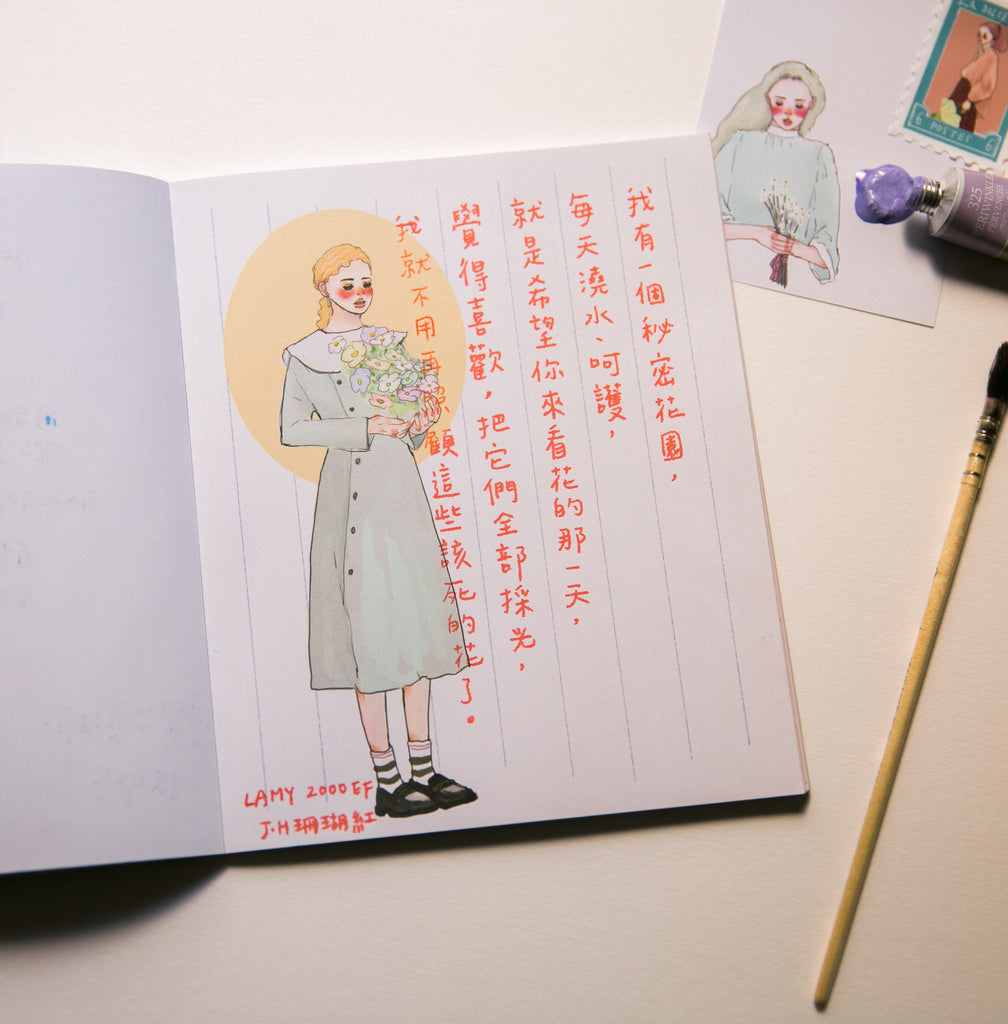 我有一個秘密花園，
每天澆水、呵護，
就是希望你來看花的那一天，
覺得喜歡，把它們全部採光，
我就不用再照顧這些該死的花了。
LAMY 2000 EF
J.H珊瑚紅
6 POSTES 6
325